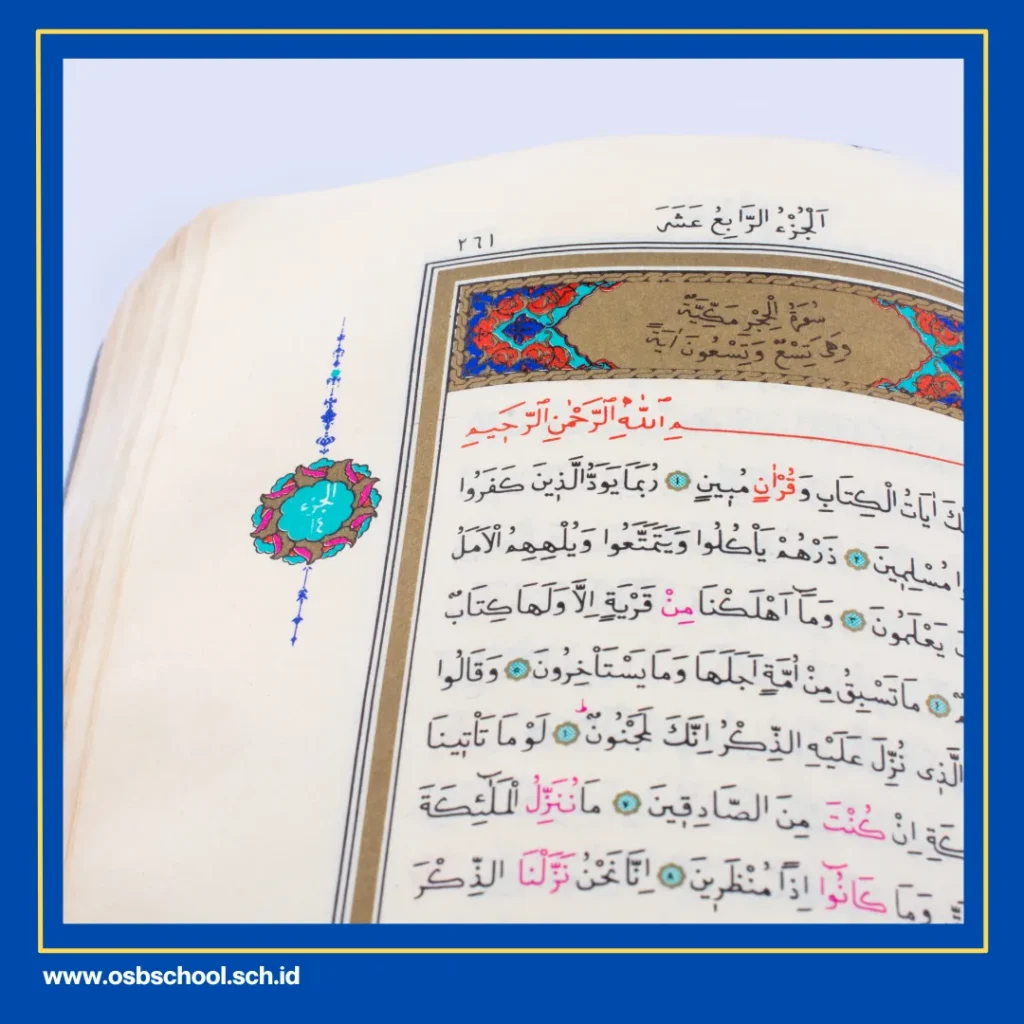 اَلْجُزْءُ الرَّابِعُ عَشَرَ
٢٦١
سُورَةُ الْحِجْرِ مَكِّيَّةٌ
وَهِيَ تِسْعٌ وَتِسْعُونَ اٰيَةً
مِ اللّٰهِ الرَّحْمٰنِ الرَّحِيمِ
اٰيَاتُ الْكِتَابِ وَقُرْاٰنٍ مُبِينٍ ١ رُبَمَا يَوَدُّ الَّذِينَ كَفَرُوا
مُسْلِمِينَ ٢ ذَرْهُمْ يَأْكُلُوا وَيَتَمَتَّعُوا وَيُلْهِهِمُ الْاَمَلُ
يَعْلَمُونَ ٣ وَمَٓا اَهْلَكْنَا مِنْ قَرْيَةٍ اِلَّا وَلَهَا كِتَابٌ
٤ مَا تَسْبِقُ مِنْ اُمَّةٍ اَجَلَهَا وَمَا يَسْتَأْخِرُونَ ٥ وَقَالُوا
الَّذِى نُزِّلَ عَلَيْهِ الذِّكْرُ اِنَّكَ لَمَجْنُونٌ ٦ لَوْ مَا تَأْتِينَا
اِنْ كُنْتَ مِنَ الصَّادِقِينَ ٧ مَا نُنَزِّلُ الْمَلٰٓئِكَةَ
وَمَا كَانُٓوا اِذًا مُنْظَرِينَ ٨ اِنَّا نَحْنُ نَزَّلْنَا الذِّكْرَ
الجزء
١٤
www.osbschool.sch.id